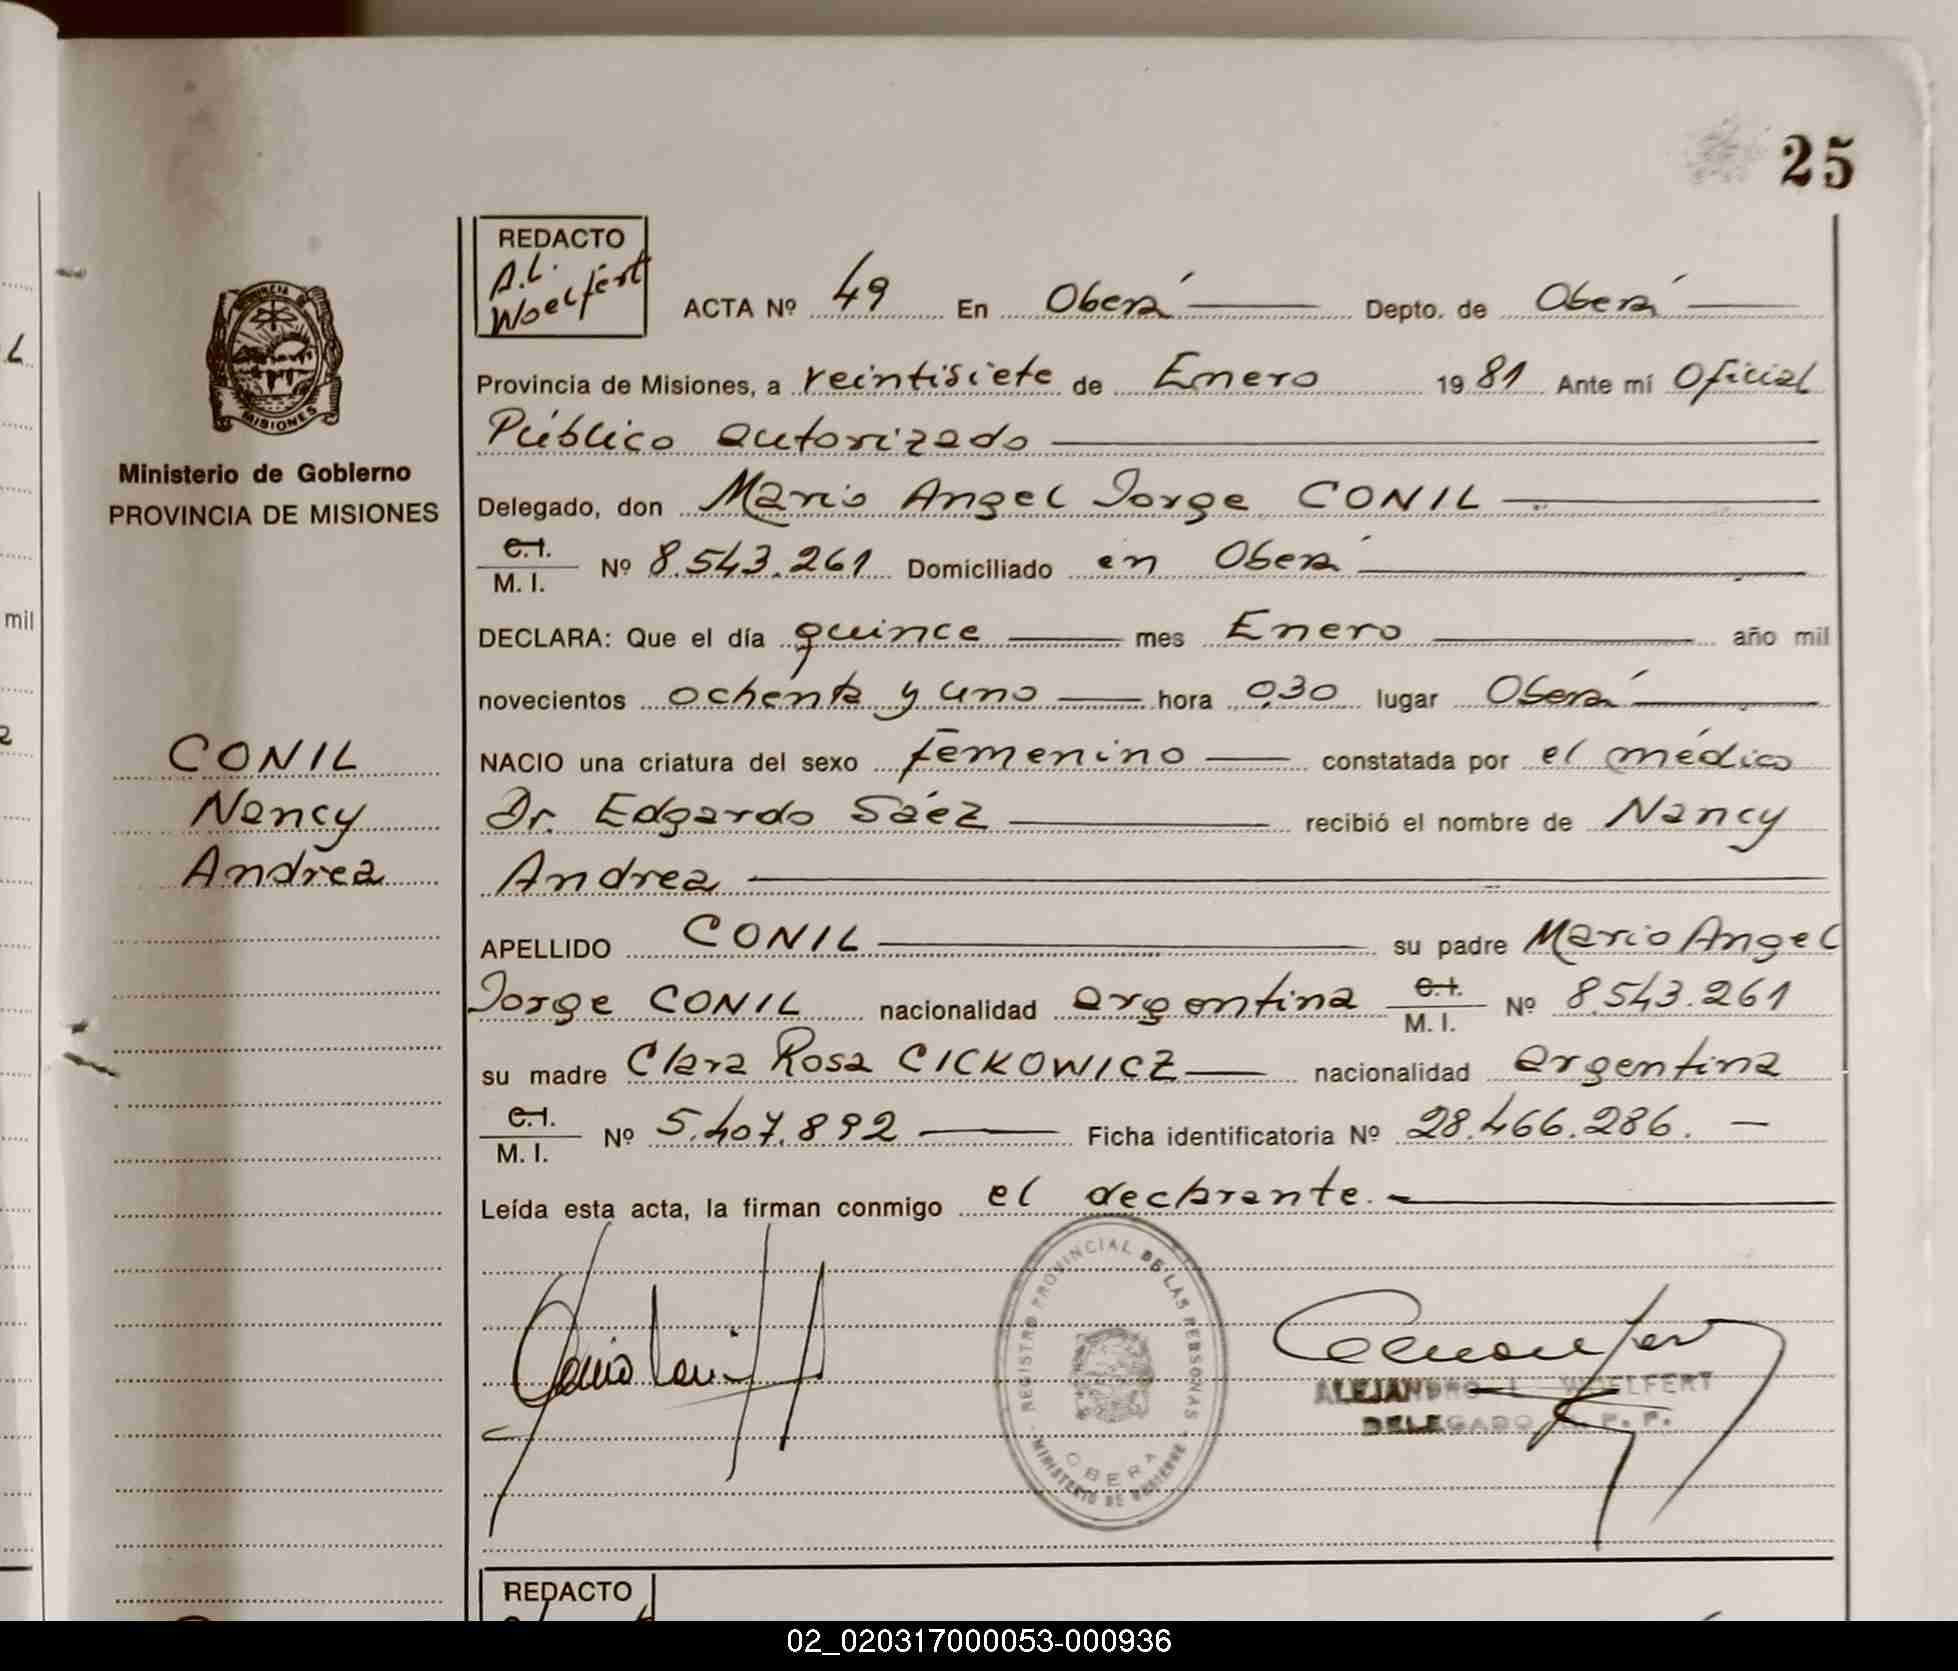 25
REDACTO
A.L. Woelfert
ACTA Nº 49 En Oberá Depto. de Oberá
Provincia de Misiones, a veintisiete de Enero 1981 Ante mí Oficial
Público autorizado
Ministerio de Gobierno
PROVINCIA DE MISIONES
Delegado, don Mario Angel Jorge CONIL
C.I.
M. I. Nº 8.543.261 Domiciliado en Oberá
DECLARA: Que el día quince mes Enero año mil
novecientos ochenta y uno hora 0,30 lugar Oberá
CONIL
Nancy
Andrea
NACIO una criatura del sexo femenino constatada por el médico
Dr. Edgardo Sáez recibió el nombre de Nancy
Andrea
APELLIDO CONIL su padre Mario Angel
Jorge CONIL nacionalidad argentina C.I. M. I. Nº 8.543.261
su madre Clara Rosa CICKOWICZ nacionalidad argentina
C.I.
M. I. Nº 5.407.892 Ficha identificatoria Nº 28.466.286.
Leída esta acta, la firman conmigo el declarante.
REGISTRO PROVINCIAL DE LAS PERSONAS
OBERA
MINISTERIO DE GOBIERNO
ALEJANDRO L. WOELFERT
DELEGADO R. P. P.
REDACTO
mil
02_020317000053-000936